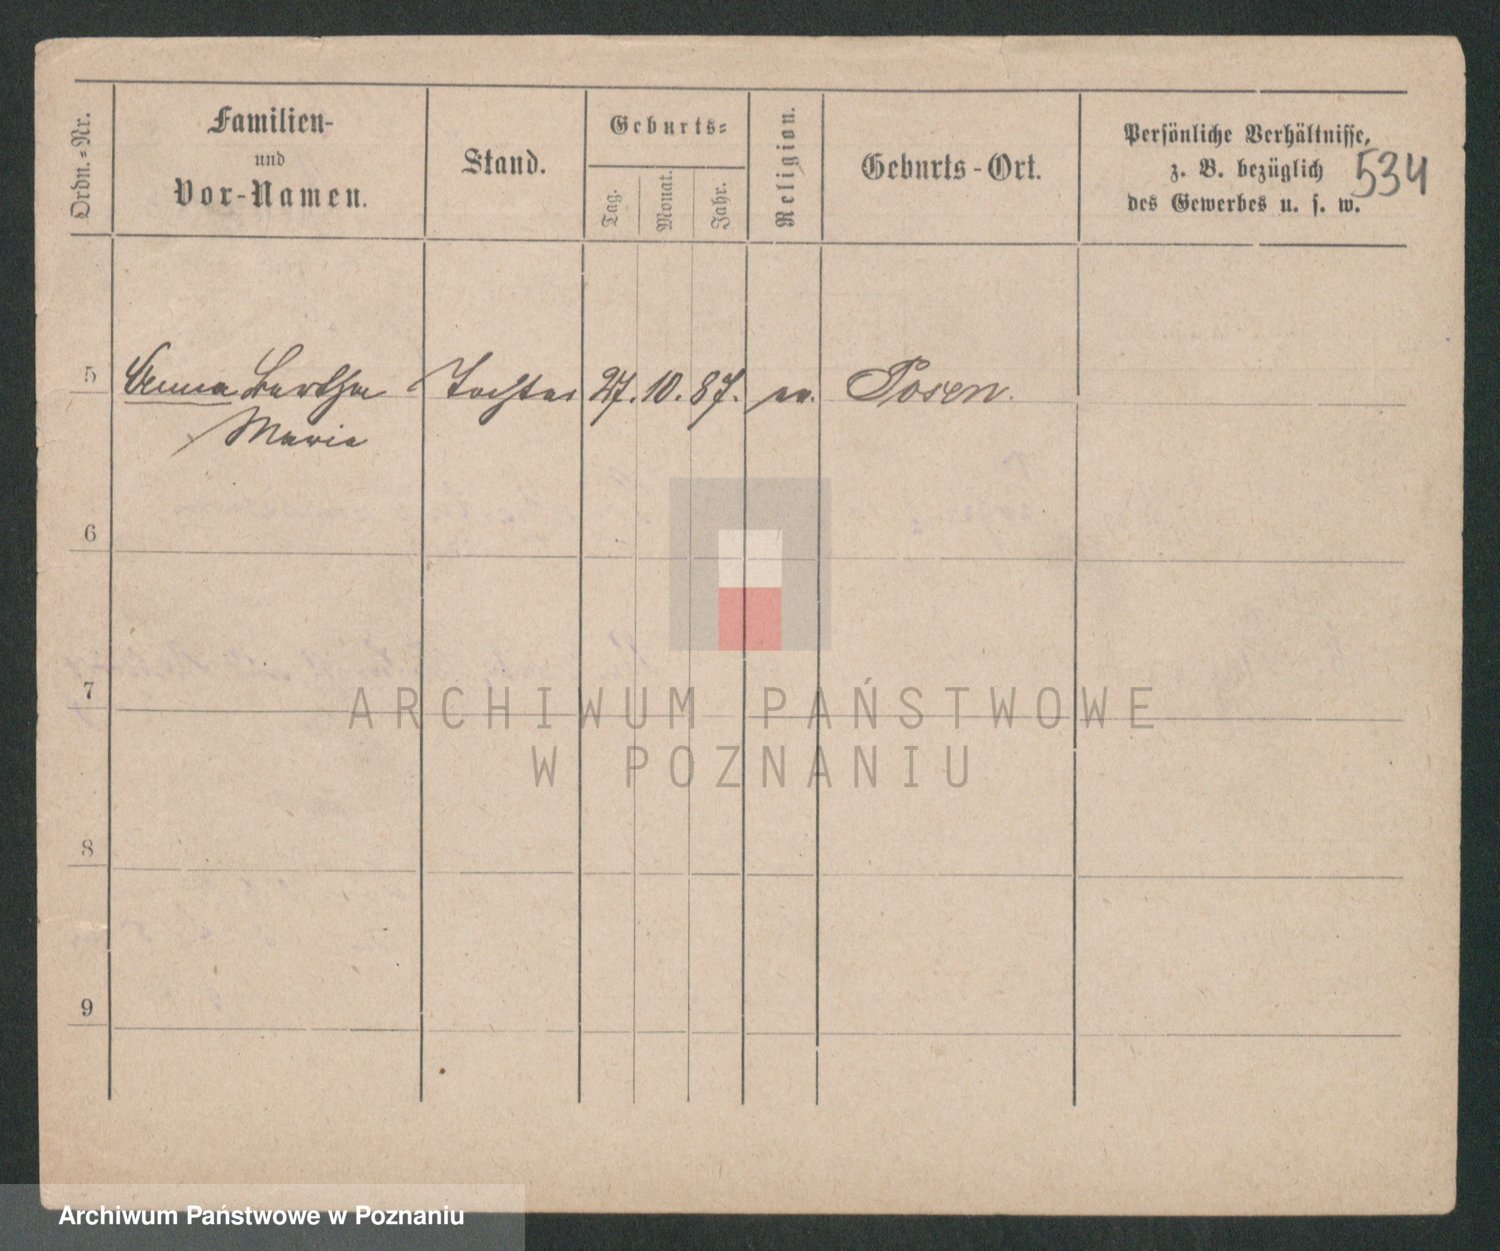 Ordn.-Nr.
Familien-
und
Vor-Namen.
Stand.
Geburts-
Tag.
Monat.
Jahr.
Religion.
Geburts-Ort.
Persönliche Verhältnisse,
z. B. bezüglich
des Gewerbes u. s. w.
534
5 Anna Bertha Tochter 27. 10. 87. ev. Posen.
Marie
6
7
8
9
ARCHIWUM PAŃSTWOWE
W POZNANIU
Archiwum Państwowe w Poznaniu